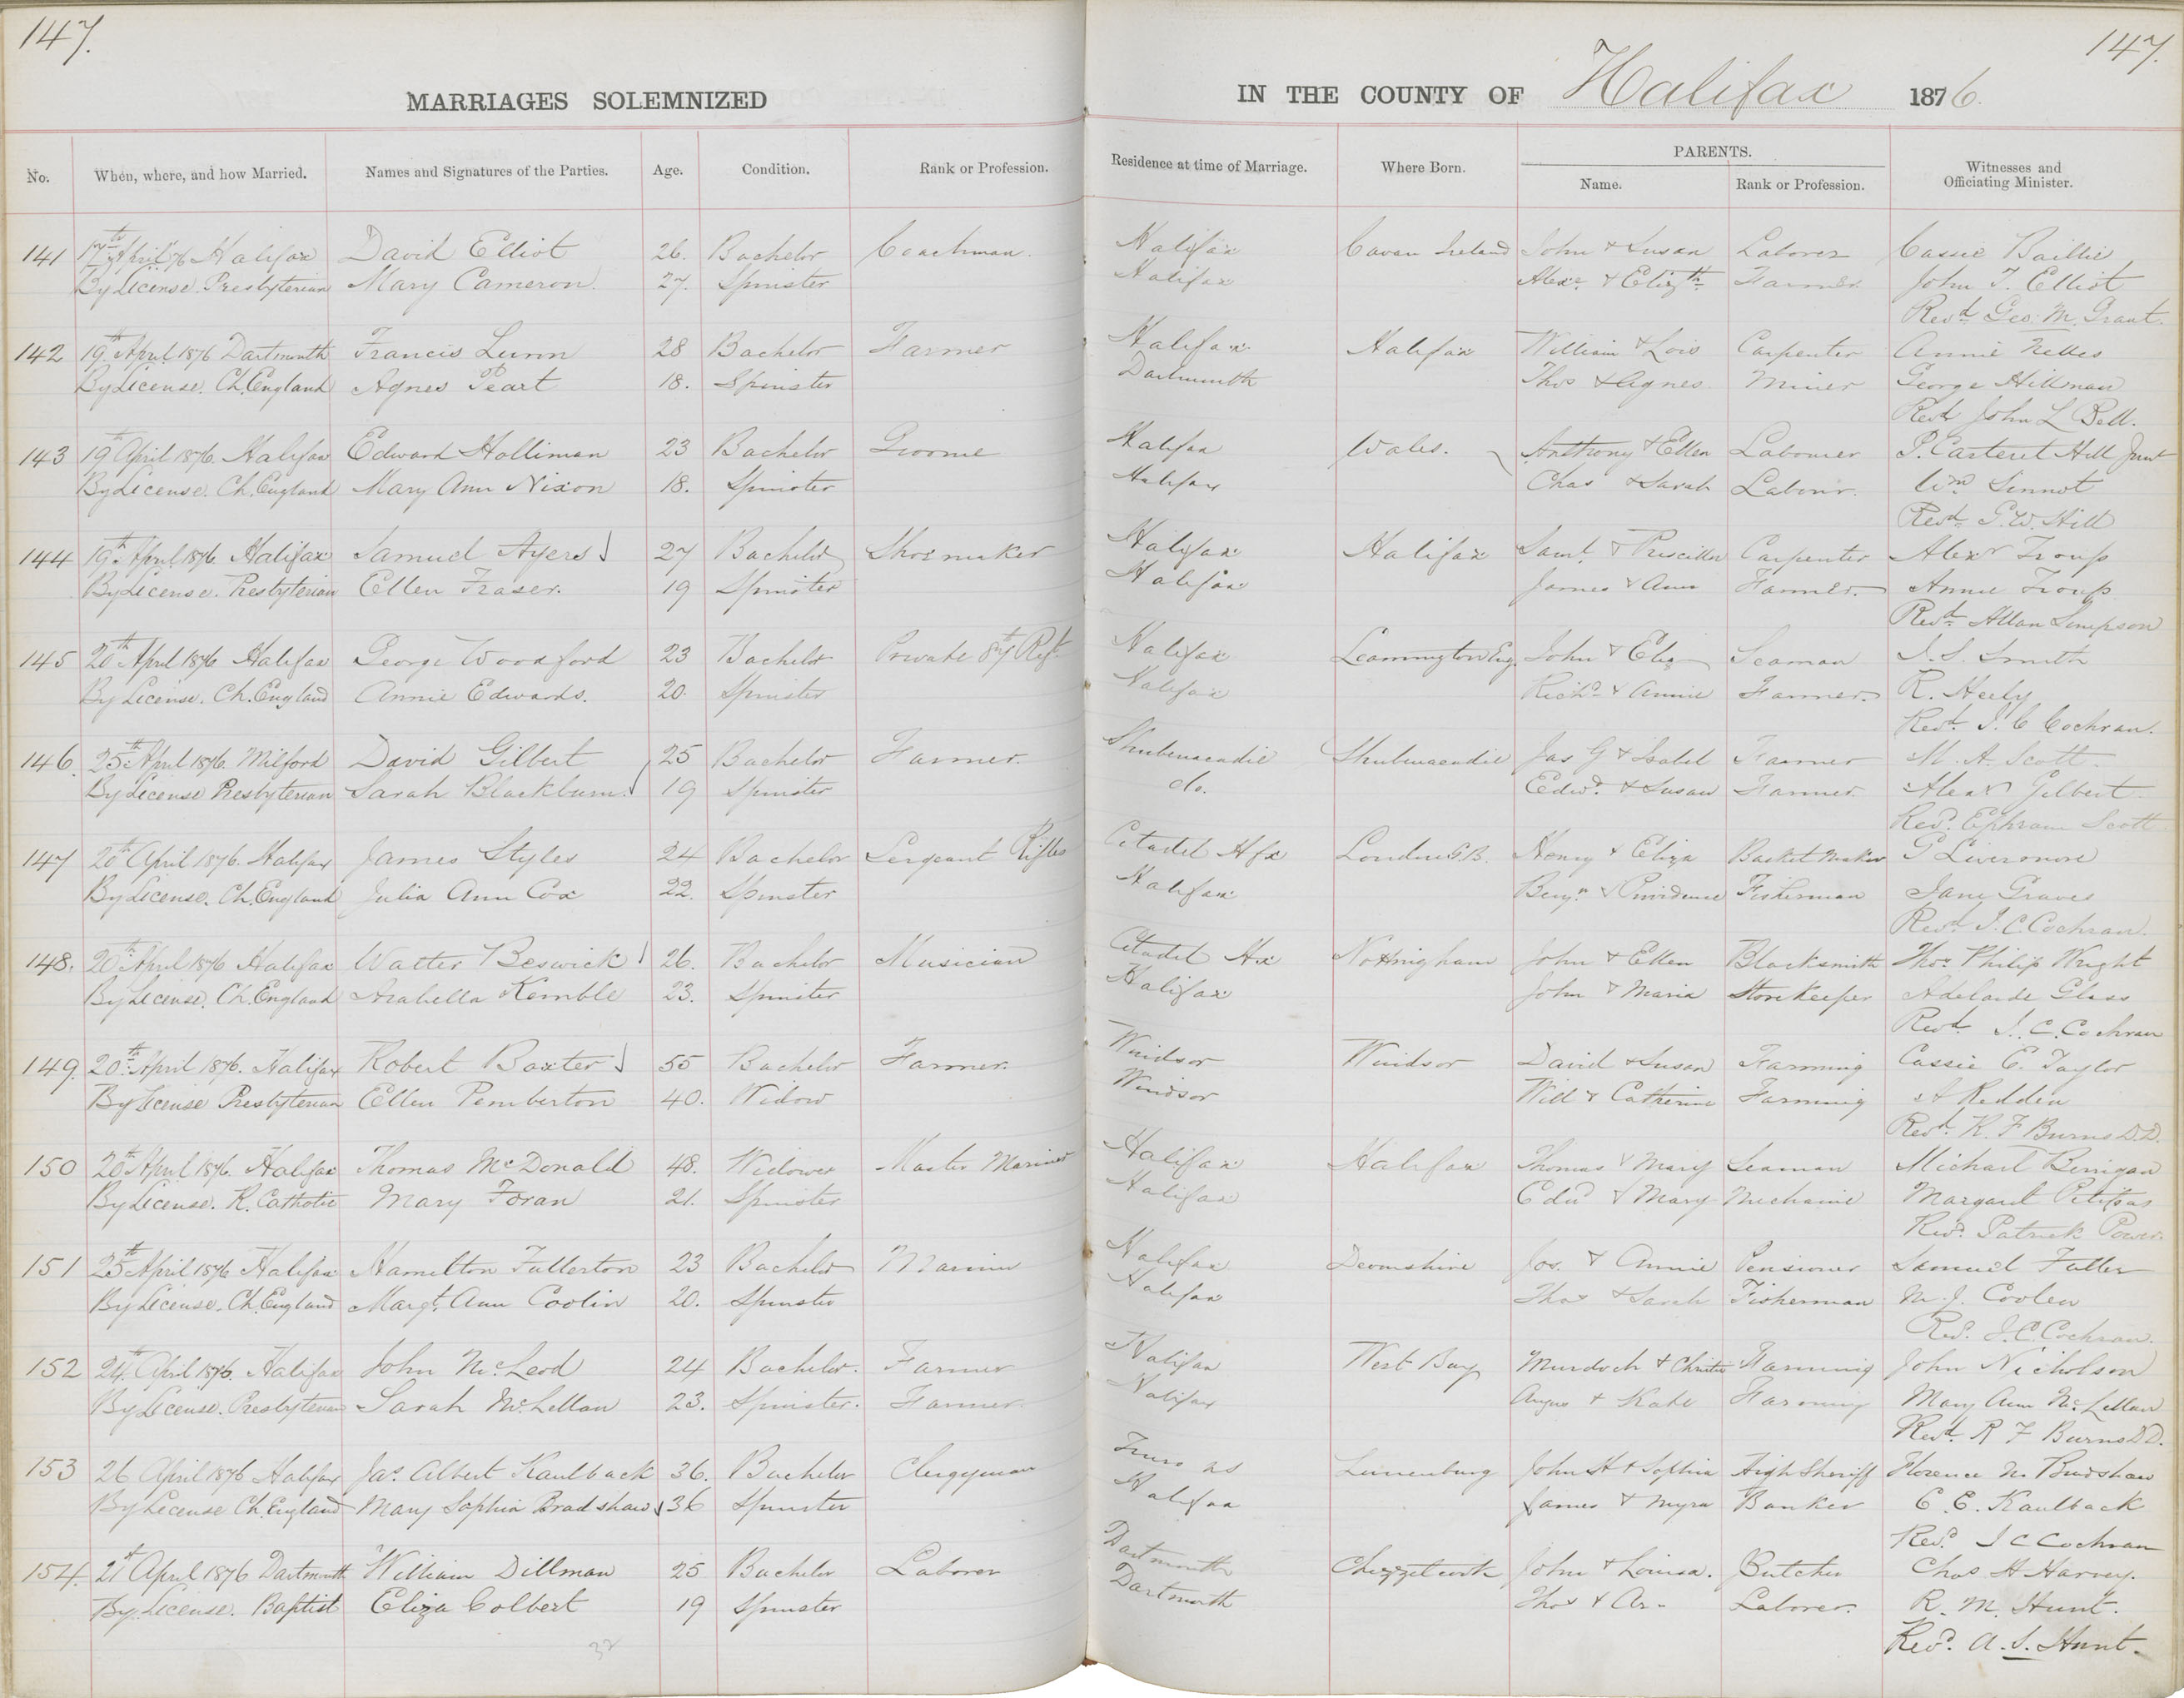 147.
147.
MARRIAGES SOLEMNIZED
IN THE COUNTY OF Halifax 1876.
No. When, where, and how Married. Names and Signatures of the Parties. Age. Condition. Rank or Profession. Residence at time of Marriage. Where Born. PARENTS. Name. Rank or Profession. Witnesses and Officiating Minister.
141 17th April '76 Halifax David Elliot 26. Bachelor Coachman. Halifax Cavan Ireland John & Susan Laborer Cassie Baillie
By License. Presbyterian Mary Cameron. 27. Spinster Halifax Alexr. & Elizth. Farmer John T. Elliot
Revd. Geo. M. Grant.
142 19th April 1876 Dartmouth Francis Lunn 28 Bachelor Farmer Halifax Halifax William & Lois Carpenter Annie
By License. Ch. England Agnes Peart 18. Spinster Dartmouth Thos & Agnes. Miner George Hillman
Revd John L Bell.
143 19th April 1876. Halifax Edward Holliman 23 Bachelor Groome Halifax Wales. Anthony & Ellen Labourer P. Carteret Hill Junr
By License. Ch. England Mary Ann Nixon 18. Spinster Halifax Chas & Sarah Labour. Wm Sinnot
Revd. G. W. Hill
144 19th. April 1876. Halifax Samuel Ayers 27 Bachelor Shoemaker Halifax Halifax Saml. & Priscilla Carpenter Alexr Troup
By License. Presbyterian Ellen Fraser. 19 Spinster Halifax James & Ann Farmer. Annie Troup
Revd. Allan Simpson
145 20th April 1876 Halifax George Woodford 23 Bachelor Private 87th Regt. Halifax Leamington Eng. John & Eliz Seaman J. S. Smith
By License. Ch. England Annie Edwards. 20. Spinster Halifax Richd. & Annie Farmer. R. Heely
Revd. J. C Cochran.
146. 25th April 1876. Milford David Gilbert 25 Bachelor Farmer. Shubenacadie Shubenacadie Jas G & Isabel Farmer M. A. Scott.
By License Presbyterian Sarah Blackburn. 19 Spinster do. Edwd. & Susan Farmer. Alexr Gilbert.
Revd. Ephraim Scott
147 20th April 1876. Halifax James Styles 24 Bachelor Sergeant Rifles Citadel Hfx London G.B. Henry & Eliza Basket Maker G Livermore
By License. Ch. England Julia Ann Cox 22. Spinster Halifax Benjn. & Providence Fisherman Jane Graves
Revd. J. C. Cochran.
148. 20th April 1876 Halifax Walter Beswick 26. Bachelor Musician Citadel Hx Nottingham John & Ellen Blacksmith Thos. Philip Wright
By License. Ch. England Arabella Kemble 23. Spinster Halifax John & Maria Storekeeper Adelaide Glass
Revd. J. C. Cochran
149. 20th April 1876. Halifax Robert Baxter 55 Bachelor Farmer. Windsor Windsor David & Susan Farming Cassie E. Taylor
By License Presbyterian Ellen Pemberton 40. Widow Windsor Will & Catherine Farming A Redden
Revd. R. F Burns D.D.
150 20th April 1876. Halifax Thomas McDonald 48. Widower Master Mariner Halifax Halifax Thomas & Mary Seaman Michael Berrigan
By License. R. Catholic Mary Foran 21. Spinster Halifax Edwd & Mary Mechanic Margaret Petitpas
Revd. Patrick Power.
151 25th April 1876 Halifax Hamilton Fullerton 23 Bachelor Mariner Halifax Devonshire Jos. & Annie Pensioner Samuel Fuller
By License. Ch. England Margt. Ann Coolin 20. Spinster Halifax Thos & Sarah Fisherman M. J. Coolen
Revd. J. C. Cochran.
152 24th April 1876. Halifax John McLeod 24 Bachelor. Farmer Halifax West Bay Murdoch & Christie Farming John Nicholson
By License. Presbyterian Sarah McLellan 23. Spinster. Farmer. Halifax Angus & Kate Farming Mary Ann McLellan
Revd. R F Burns D.D.
153 26 April 1876 Halifax Jas. Albert Kaulback 36. Bachelor Clergyman Truro NS Lunenburg John H & Sophia High Sheriff Florence M. Bradshaw
By License Ch. England Mary Sophia Bradshaw 36 Spinster Halifax James & Myra Banker C. E. Kaulback
Revd. J C Cochran
154. 21st April 1876 Dartmouth William Dillman 25 Bachelor Laborer Dartmouth Chezzetcook John & Louisa. Butcher Chas H Harvey.
By License. Baptist Eliza Colbert 19 Spinster Dartmouth Thos & An- Laborer. R. M. Hunt.
32 Revd. A. S. Hunt.